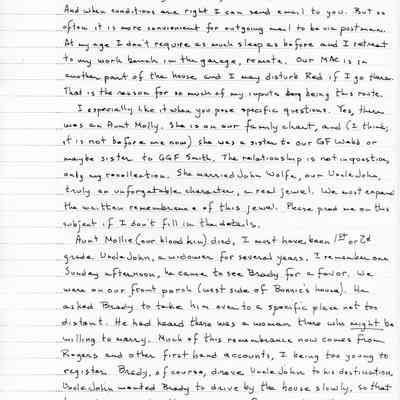 And when conditions are right I can send email to you. But so
often it is more convenient for outgoing mail to be via postman.
At my age I don't require as much sleep as before and I retreat
to my work bench in the garage, remote. Our MAC is in
another part of the house and I may disturb Red if I go there.
That is the reason for so much of my inputs being this route.
I especially like it when you pose specific questions. Yes, there
was an Aunt Molly. She is on our family chart, and (I think,
it is not before me now) she was a sister to our GF Webb or
maybe sister to GGF Smith. The relationship is not in question,
only my recollection. She married John Wolfe, our Uncle John,
truly an unforgetable character, a real jewel. We must expand
the written remembrance of this jewel. Please prod me on this
subject if I don't fill in the details.
Aunt Mollie (our blood kin) died, I must have been 1st or 2d
grade. Uncle John, a widower for several years. I remember one
Sunday afternoon, he came to see Brady for a favor. We
were on our front porch (west side of Bonnie's house). He
asked Brady to take him over to a specific place not too
distant. He had heard there was a woman there who might be
willing to marry. Much of this remembrance now comes from
Rogers and other first hand accounts, I being too young to
register. Brady, of course, drove Uncle John to his destination.
Uncle John wanted Brady to drive by the house slowly, so that